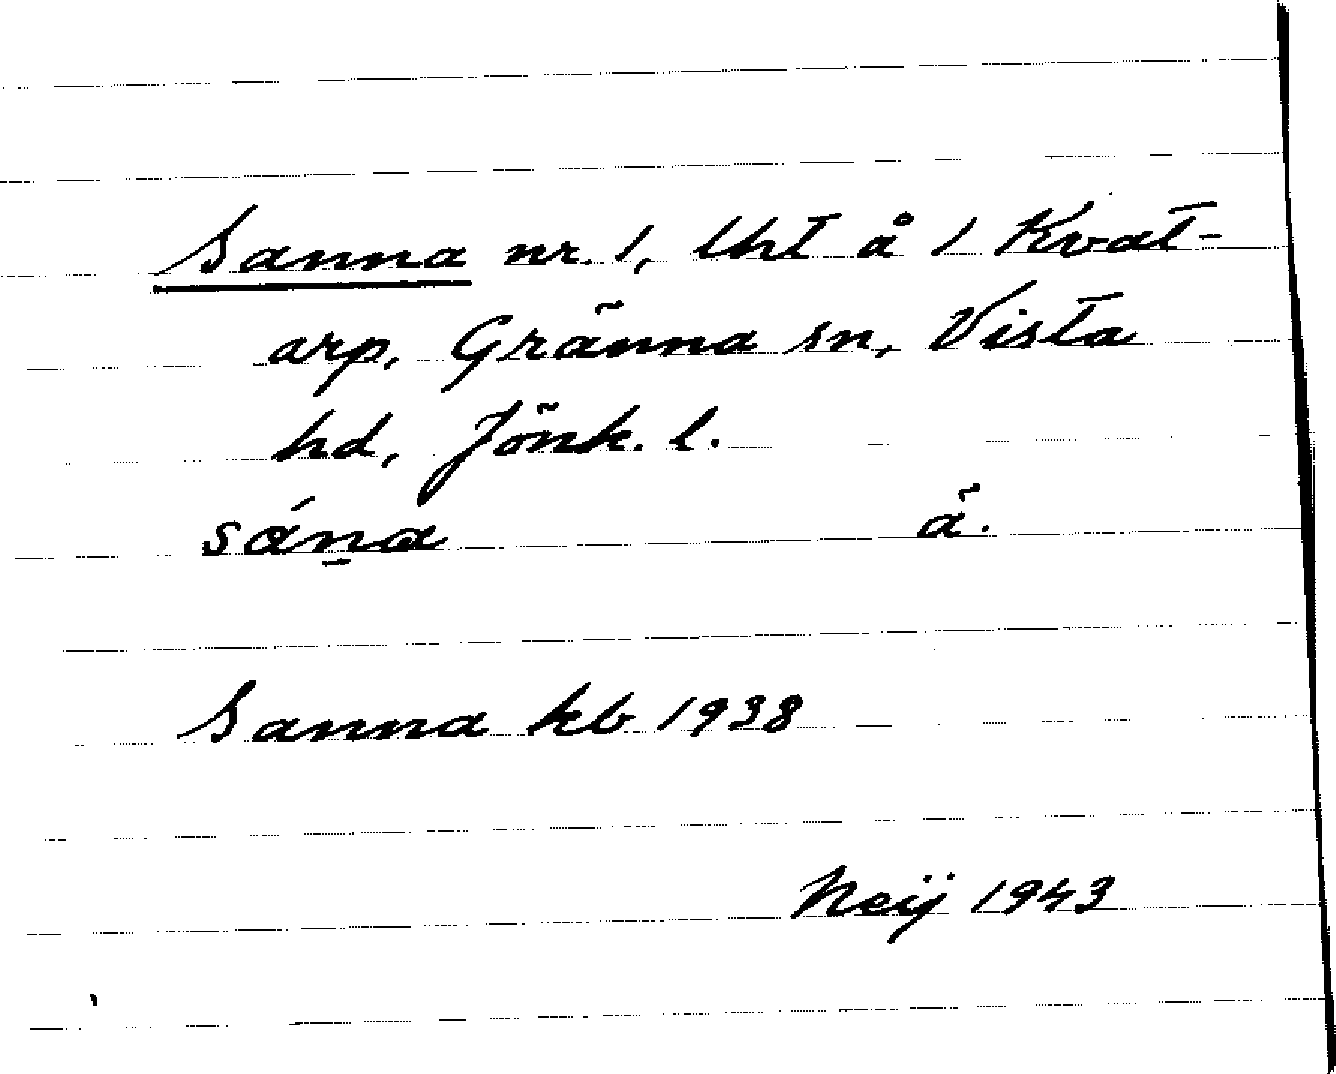 Sanna nr. 1, lht å 1 Kvat-
arp, Gränna sn, Vista
hd, Jönk. l.
sána̱ ä.
Sanna kb 1938
Neij 1943